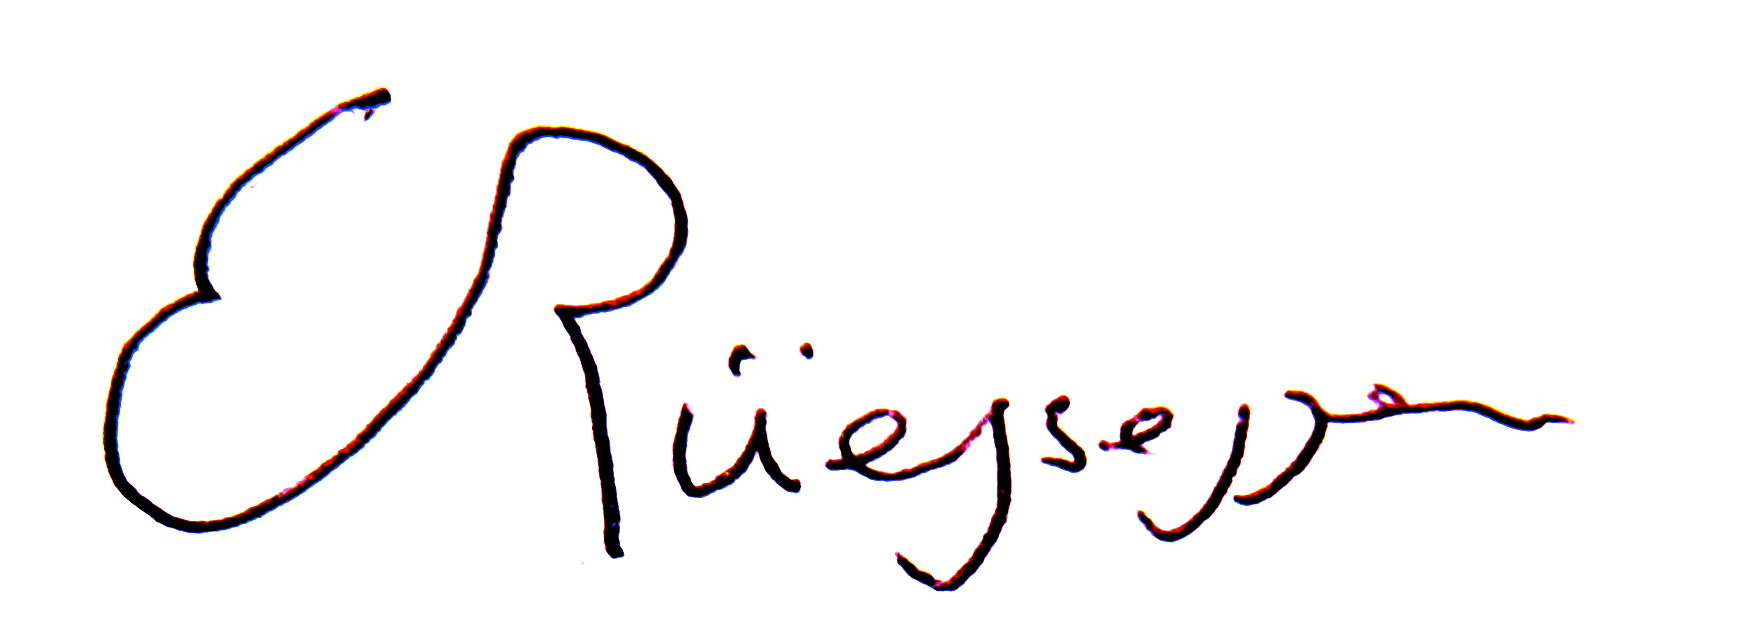 E Rüegsegger